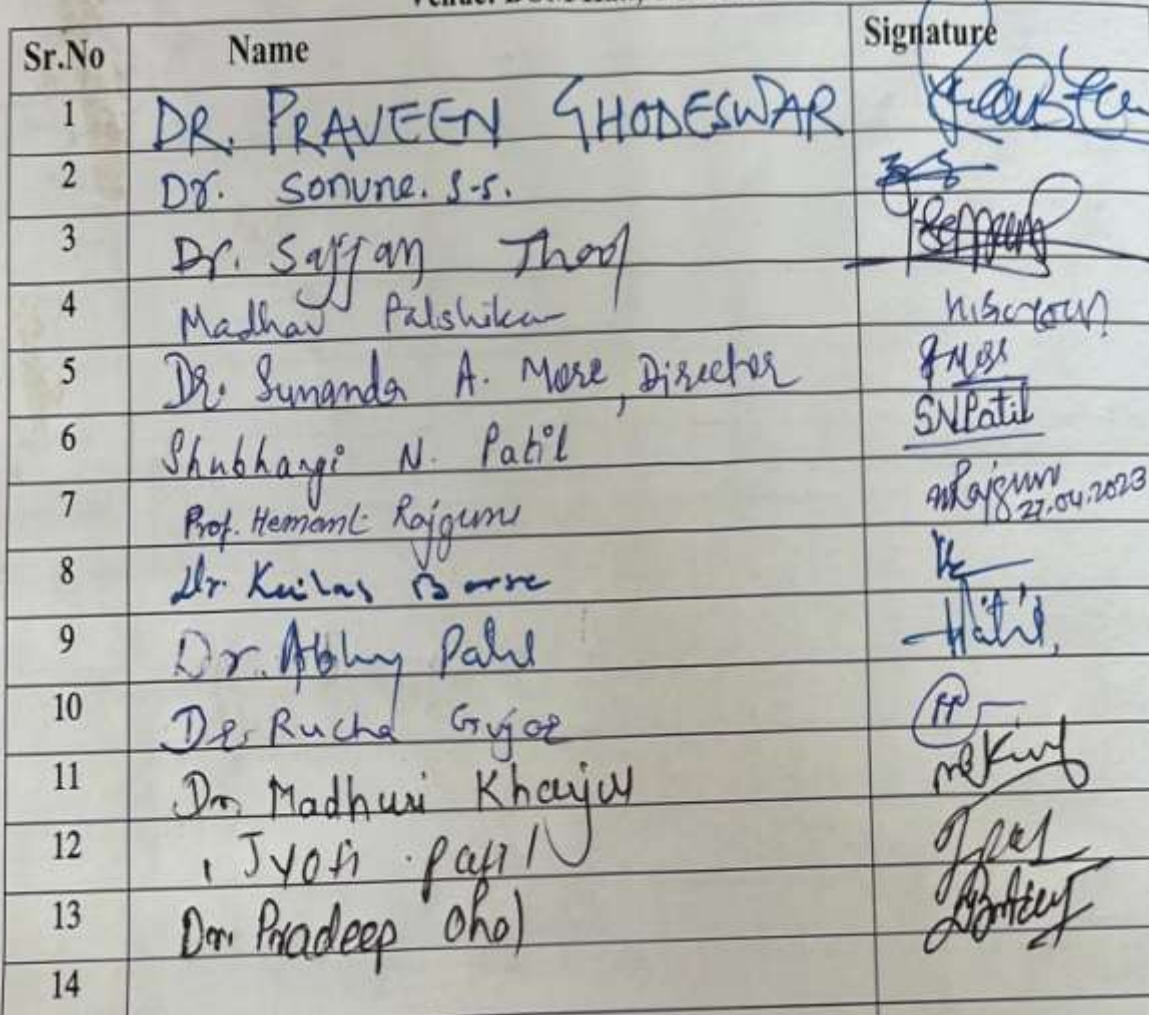 Sr.No Name Signature
1 DR. PRAVEEN GHODESWAR
2 Dr. Sonune. S.S.
3 Dr. Sajjan Thool
4 Madhav Palshikar
5 Dr. Sunanda A. More, Director
6 Shubhangi N. Patil SNPatil
7 Prof. Hemant Rajguru Rajguru
27.04.2023
8 Dr. Kailas Borse
9 Dr. Abhay Patil
10 Dr. Rucha Gujar
11 Dr. Madhuri
12 Jyoti Patil
13 Dr. Pradeep Ohol
14